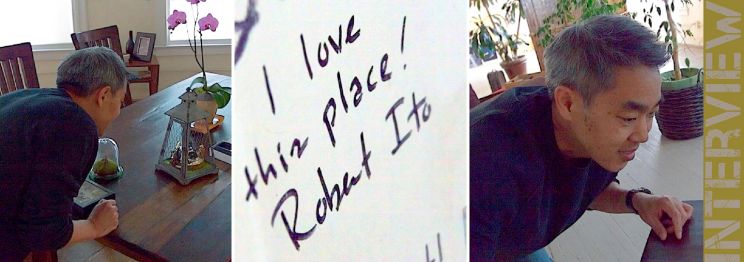 I love
this place!
Robert Ito
INTERVIEW